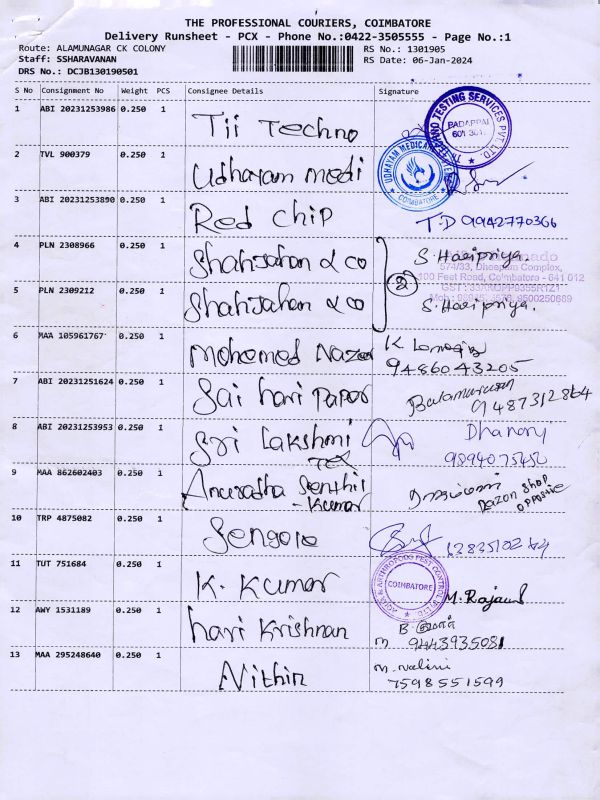 THE PROFESSIONAL COURIERS, COIMBATORE
Delivery Runsheet - PCX - Phone No.:0422-3505555 - Page No.:1
Route: ALAMUNAGAR CK COLONY
Staff: SSHARAVANAN
DRS No.: DCJB130190501
RS No.: 1301905
RS Date: 06-Jan-2024
S No Consignment No Weight PCS Consignee Details Signature
1 ABI 20231253986 0.250 1 Tii Techno
TECHNO TESTING SERVICES PVT. LTD.
2 TVL 900379 0.250 1 Udhayam medi
UDHAYAM MEDICAL
COIMBATORE
3 ABI 20231253890 0.250 1 Red chip T.D 9942770366
4 PLN 2308966 0.250 1 Shahjahan & co S. Haripriya.
574/33, Dheepam Complex,
100 Feet Road, Coimbatore - 641 012
2
5 PLN 2309212 0.250 1 Shahjahan & co S. Haripriya.
6 MAA 105961767 0.250 1 Mohamed Nazeer K
9486043205
7 ABI 20231251624 0.250 1 Sai hari Paper Balamurugan
9487312864
8 ABI 20231253953 0.250 1 Sri Lakshmi Tex
9894075450
9 MAA 862602403 0.250 1 Anuradha Senthil - Kumar
shop
opposite
10 TRP 4875082 0.250 1
11 TUT 751684 0.250 1 K. Kumar
PEST CONTROL
COIMBATORE
12 AWY 1531189 0.250 1 hari Krishnan B
m 9443935081
13 MAA 295248640 0.250 1 Nithin m. Nalini
7598551599